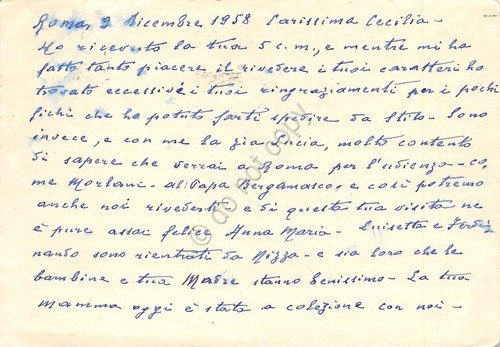 Roma, 9 Dicembre 1958 Carissima Cecilia -
Ho ricevuto la tua 5 c.m., e mentre mi ha
fatto tanto piacere il rivedere i tuoi caratteri ho
trovato eccessivi i tuoi ringraziamenti per i pochi
fichi che ho potuto farti spedire da Stilo. Sono
invece, e con me la zia Lucia, molto contento
di sapere che verrai a Roma per l'udienza - co=
me Morlani - al Papa Bergamasco - e così potremo
anche noi rivederti e di questa tua visita ne
è pure assai felice Anna Maria - Luisetta e Ferdi
nando sono rientrati da Nizza - e sia loro che le
bambine e tua Madre stanno benissimo - La tua
mamma oggi è stata a colezione con noi -
do not copy